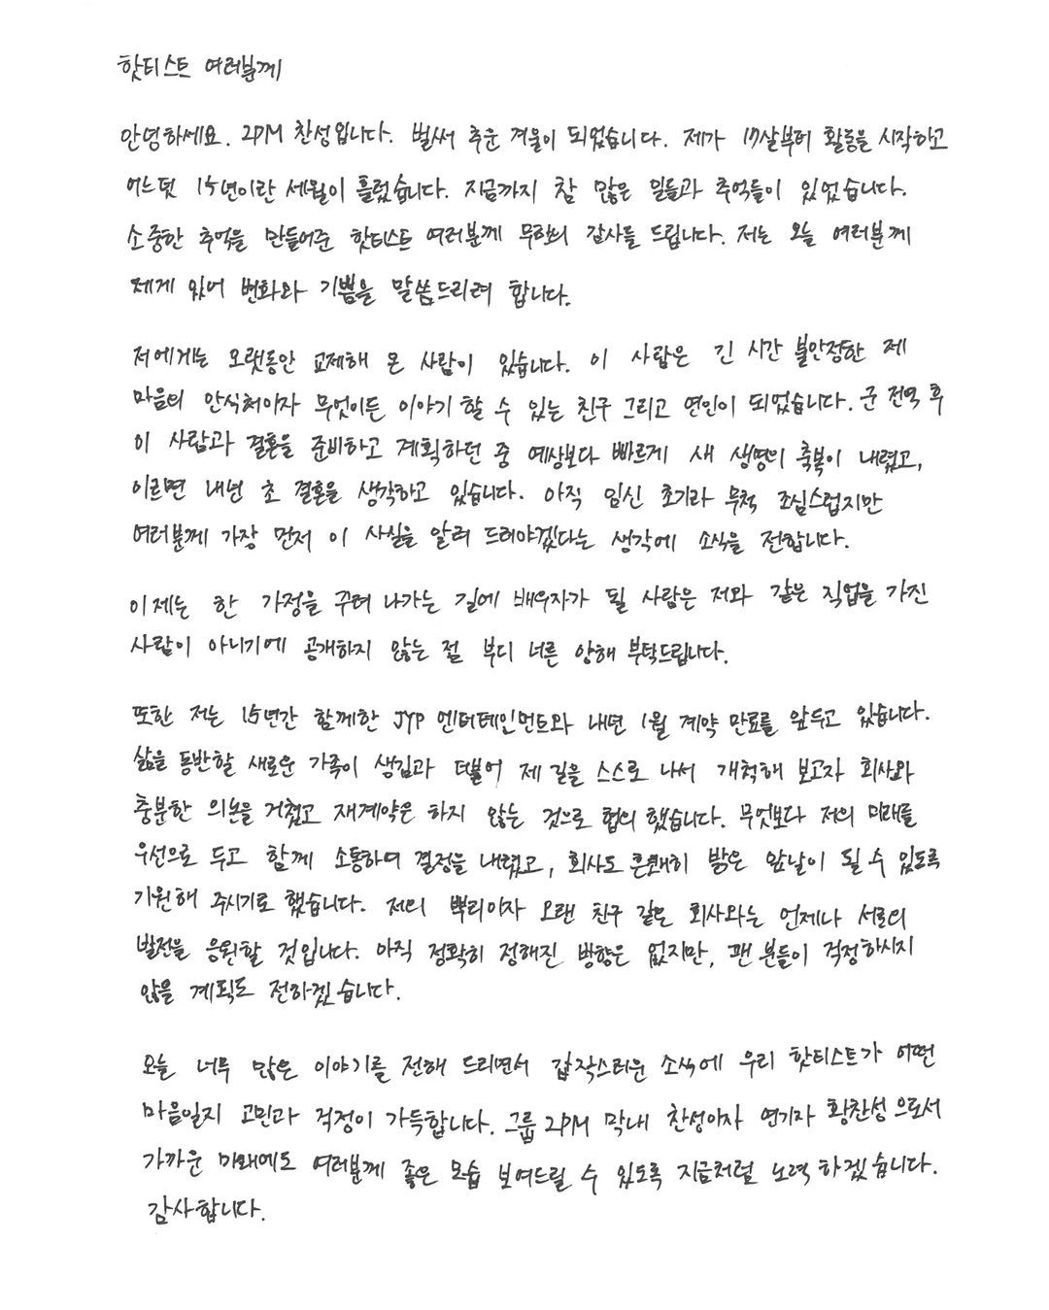 핫티스트 여러분께
안녕하세요. 2PM 찬성입니다. 벌써 추운 겨울이 되었습니다. 제가 17살부터 활동을 시작하고
어느덧 15년이란 세월이 흘렀습니다. 지금까지 참 많은 일들과 추억들이 있었습니다.
소중한 추억을 만들어준 핫티스트 여러분께 무한의 감사를 드립니다. 저는 오늘 여러분께
제게 있어 변화와 기쁨을 말씀드리려 합니다.
저에게는 오랫동안 교제해 온 사람이 있습니다. 이 사람은 긴 시간 불안정한 제
마음의 안식처이자 무엇이든 이야기 할 수 있는 친구 그리고 연인이 되었습니다. 군 전역 후
이 사람과 결혼을 준비하고 계획하던 중 예상보다 빠르게 새 생명의 축복이 내렸고,
이르면 내년 초 결혼을 생각하고 있습니다. 아직 임신 초기라 무척 조심스럽지만
여러분께 가장 먼저 이 사실을 알려 드려야겠다는 생각에 소식을 전합니다.
이제는 한 가정을 꾸려 나가는 길에 배우자가 될 사람은 저와 같은 직업을 가진
사람이 아니기에 공개하지 않는 점 부디 너른 양해 부탁드립니다.
또한 저는 15년간 함께한 JYP 엔터테인먼트와 내년 1월 계약 만료를 앞두고 있습니다.
삶을 동반할 새로운 가족이 생김과 더불어 제 길을 스스로 나서 개척해 보고자 회사와
충분한 의논을 거쳤고 재계약은 하지 않는 것으로 협의 했습니다. 무엇보다 저의 미래를
우선으로 두고 함께 소통하며 결정을 내렸고, 회사도 굳건히 밝은 앞날이 될 수 있도록
기원해 주시기로 했습니다. 저의 뿌리이자 오랜 친구 같은 회사와는 언제나 서로의
발전을 응원할 것입니다. 아직 정확히 정해진 방향은 없지만, 팬 분들이 걱정하시지
않을 계획도 전하겠습니다.
오늘 너무 많은 이야기를 전해 드리면서 갑작스러운 소식에 우리 핫티스트가 어떤
마음일지 고민과 걱정이 가득합니다. 그룹 2PM 막내 찬성이자 연기자 황찬성으로서
가까운 미래에도 여러분께 좋은 모습 보여드릴 수 있도록 지금처럼 노력하겠습니다.
감사합니다.